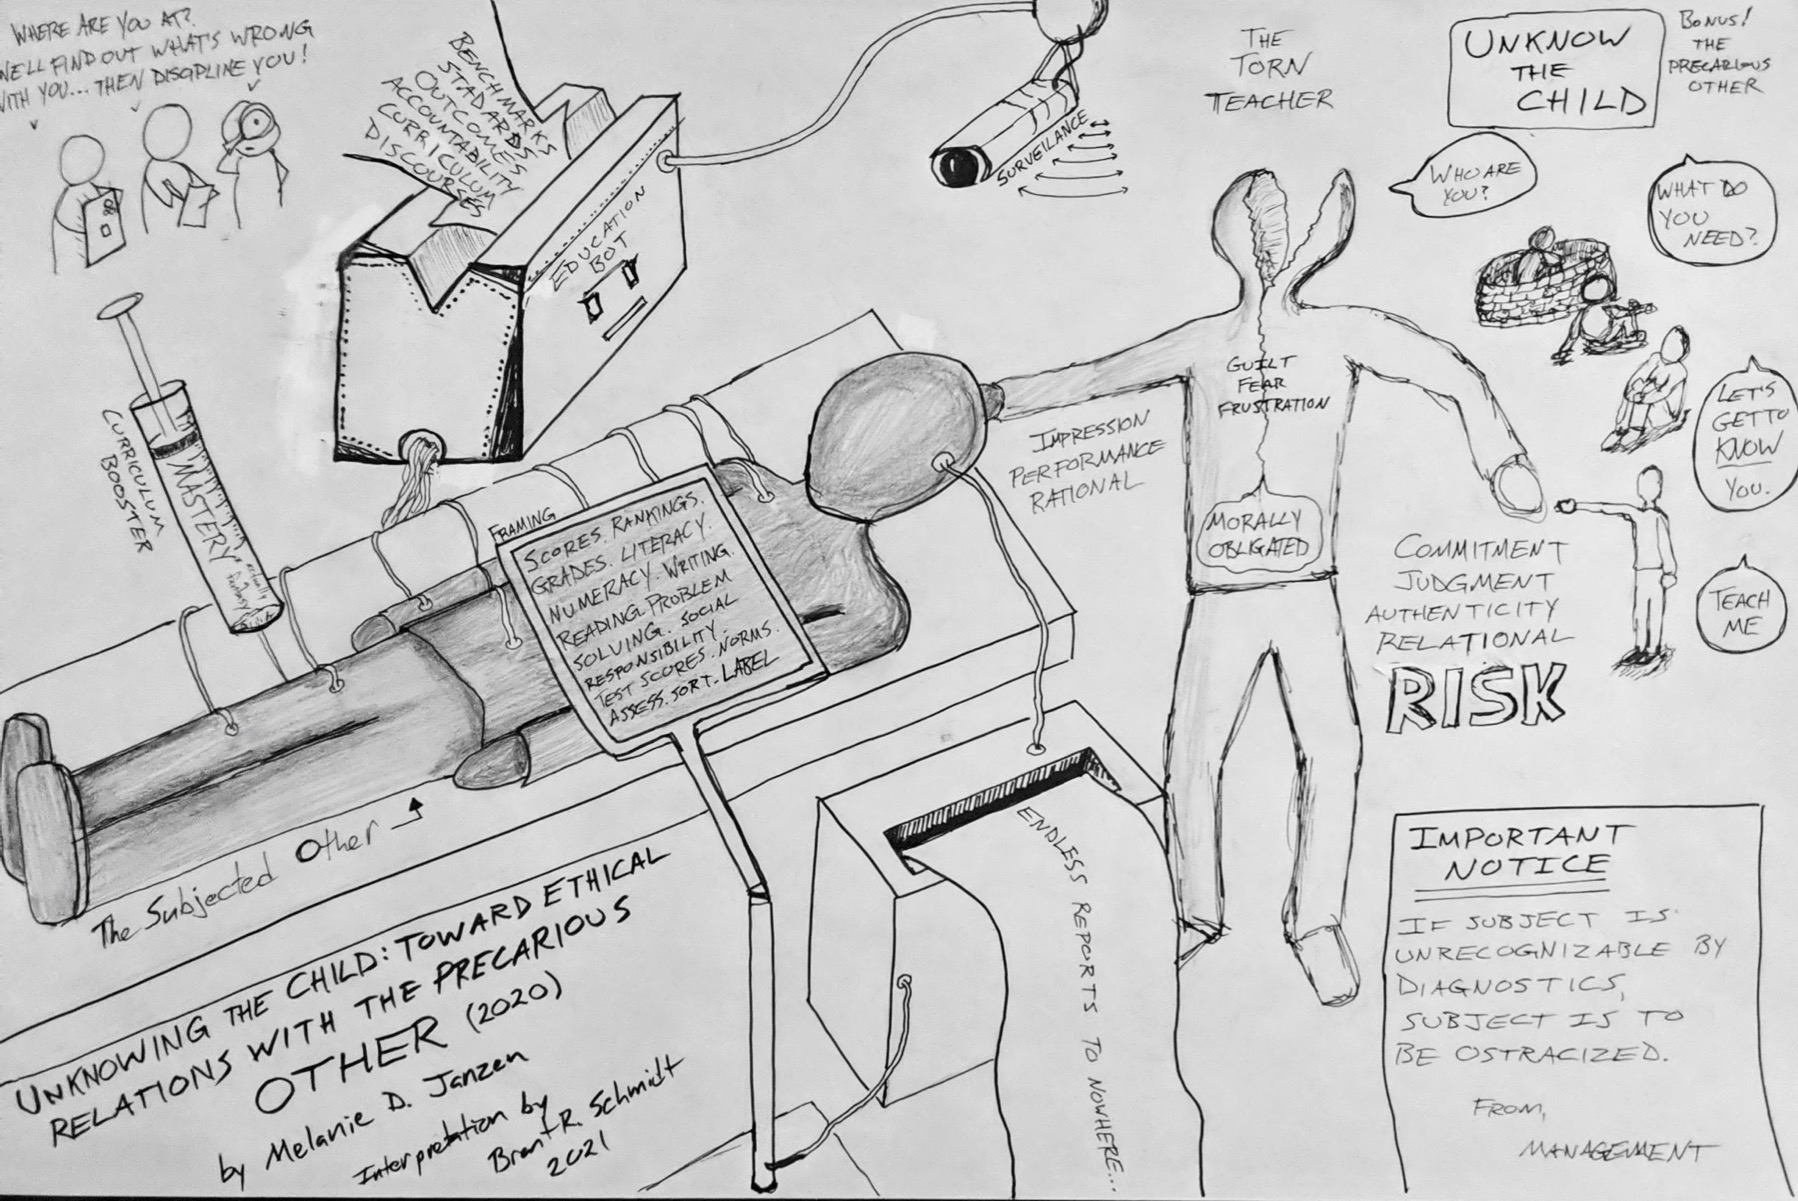 WHERE ARE YOU AT?
WE'LL FIND OUT WHAT'S WRONG
WITH YOU... THEN DISCIPLINE YOU!
BENCHMARKS
STADARDS
OUTCOMES
ACCOUNTABILITY
CURRICULUM
DISCOURSES
EDUCATION
BOT
SURVEILANCE
THE
TORN
TEACHER
UNKNOW
THE
CHILD
BONUS!
THE
PRECARIOUS
OTHER
WHO ARE
YOU?
WHAT DO
YOU
NEED?
LET'S
GET TO
KNOW
YOU.
TEACH
ME
CURRICULUM
BOOSTER
MASTERY
GUILT
FEAR
FRUSTRATION
MORALLY
OBLIGATED
IMPRESSION
PERFORMANCE
RATIONAL
COMMITMENT
JUDGMENT
AUTHENTICITY
RELATIONAL
RISK
FRAMING
SCORES. RANKINGS.
GRADES. LITERACY.
NUMERACY. WRITING.
READING. PROBLEM
SOLVING. SOCIAL
RESPONSIBILITY.
TEST SCORES. NORMS.
ASSESS. SORT. LABEL
The Subjected Other
ENDLESS REPORTS TO NOWHERE...
UNKNOWING THE CHILD: TOWARD ETHICAL
RELATIONS WITH THE PRECARIOUS
OTHER (2020)
by Melanie D. Janzen
Interpretation by
Brent R. Schmidt
2021
IMPORTANT
NOTICE
IF SUBJECT IS
UNRECOGNIZABLE BY
DIAGNOSTICS,
SUBJECT IS TO
BE OSTRACIZED.
FROM,
MANAGEMENT